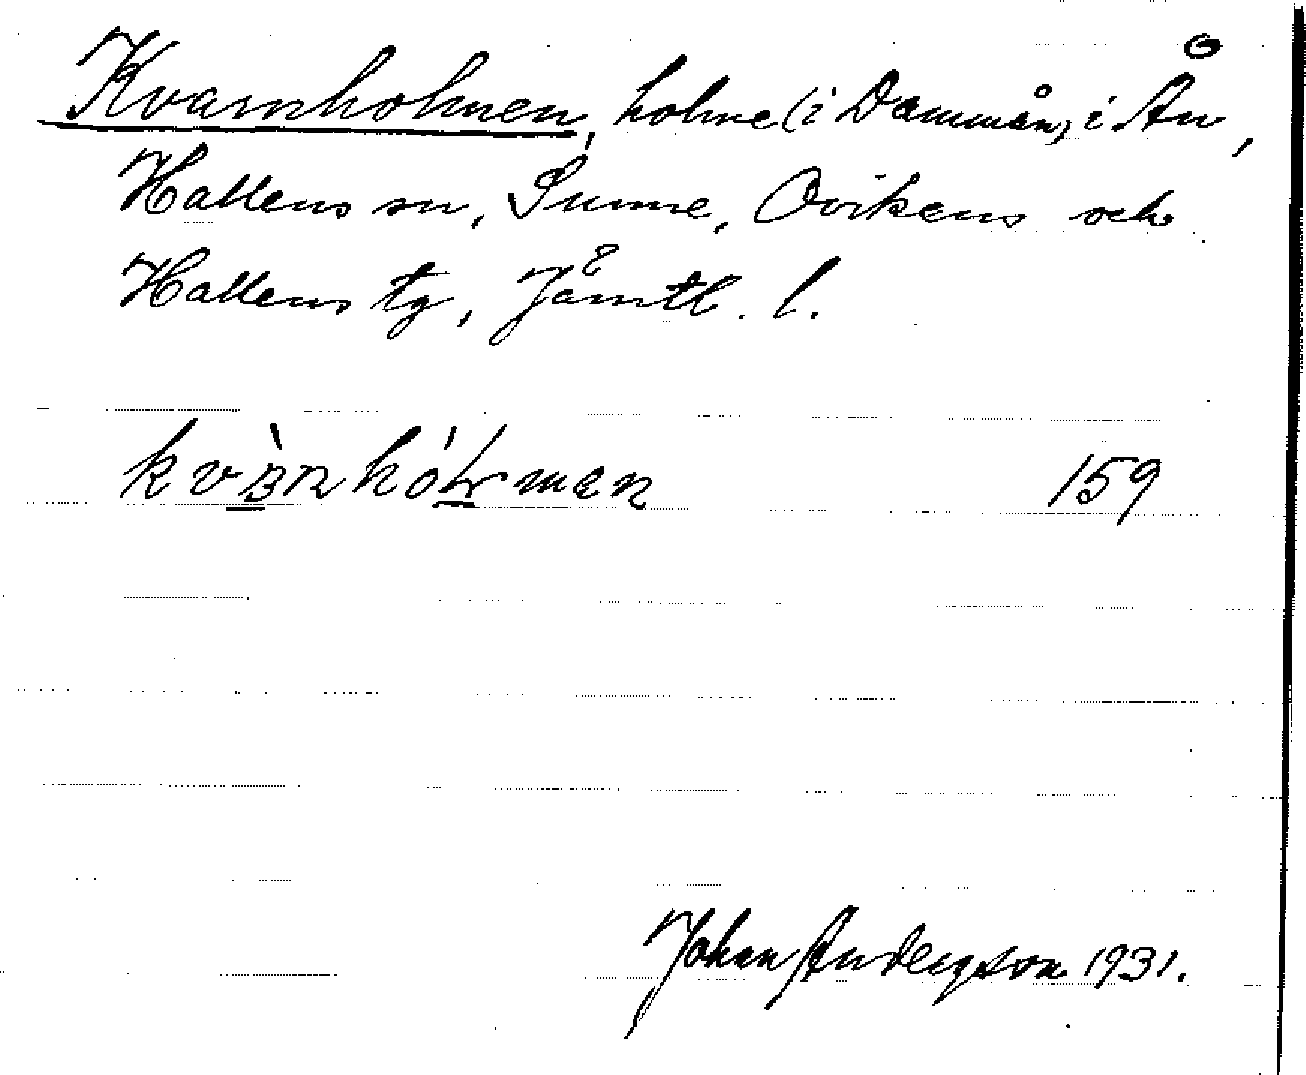 Kvarnholmen, holme (i Dammån) i Ån,
Hallens sn, Sunne, Ovikens och
Hallens tg, Jämtl. l.
159
John Anderson 1931.